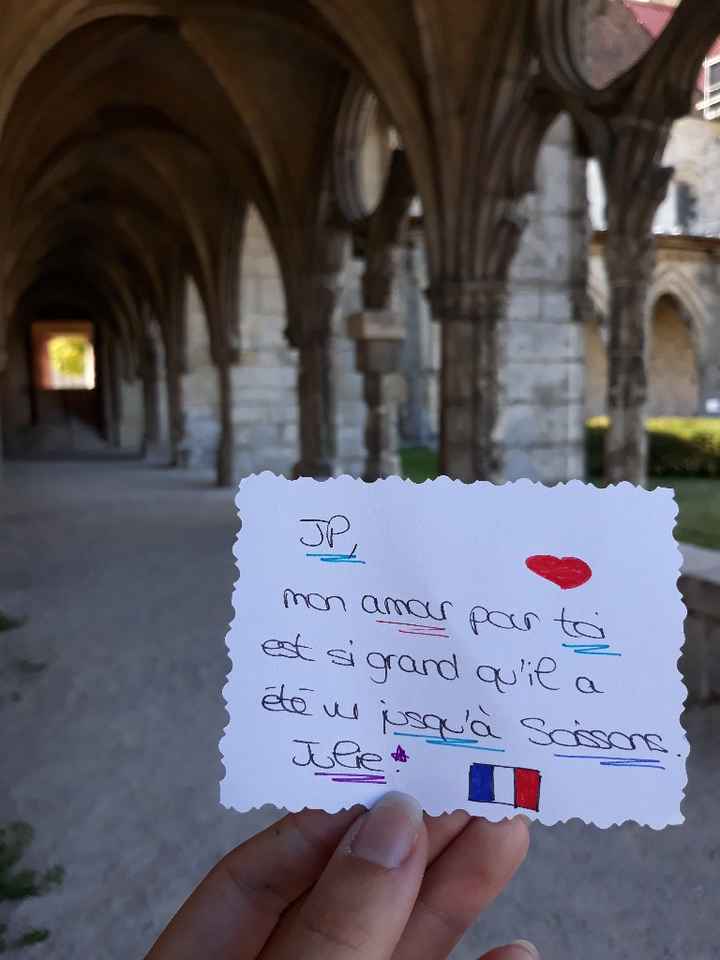 JP,
mon amour pour toi
est si grand qu'il a
été vu jusqu'à Soissons.
Julie